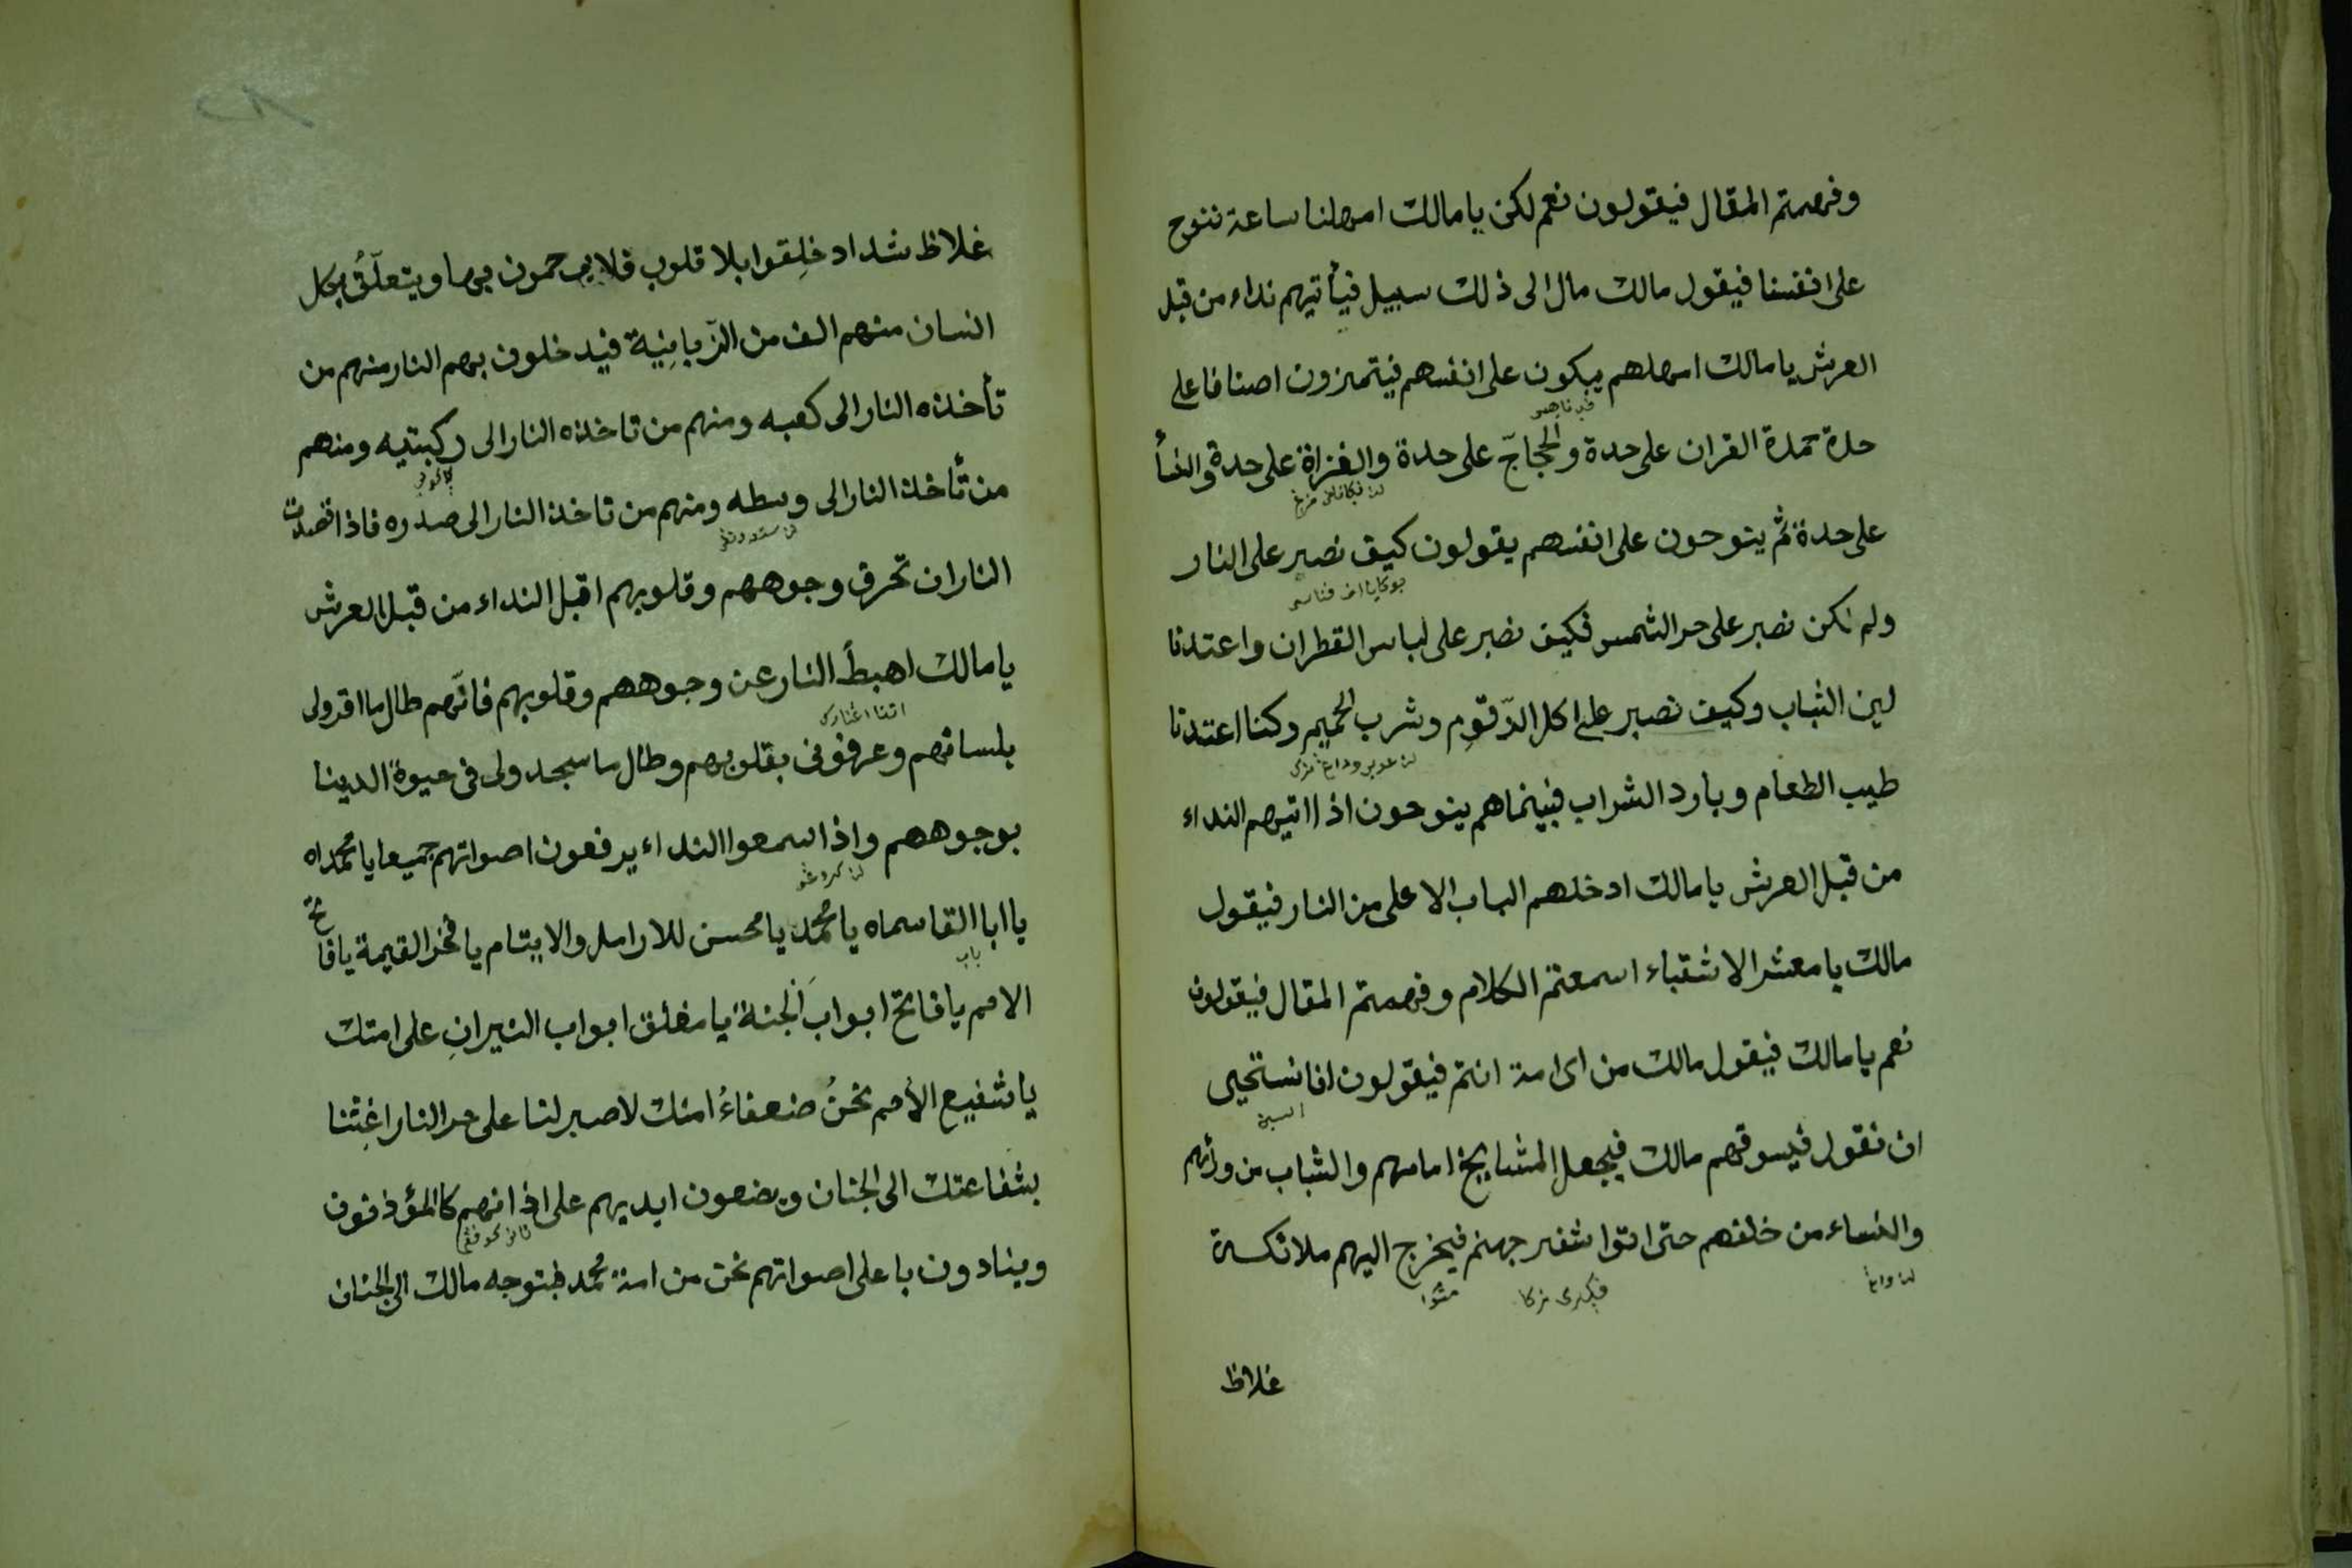 وفهمتم المقال فيقولون نعم لكن يا مالك امهلنا ساعة ننوح
على انفسنا فيقول مالك مال الى ذلك سبيل فيأتيهم نداء من قبل
العرش يا مالك امهلهم يبكون على انفسهم فيتميزون اصنافا على
حدة حمدة القران على حدة والحجاجّ على حدة والغزاة على حدة والنسأ
على حدة ثم ينوحون على انفسهم يقولون كيف نصبر على النار
ولم نكن نصبر على حر الشمس فكيف نصبر على لباس القطران واعتدنا
لين الثياب وكيف نصبر على اكل الدّقوم وشرب الحميم وكنا اعتدنا
طيب الطعام وبارد الشراب فبينما هم ينوحون اذا اتيهم النداء
من قبل العرش يا مالك ادخلهم الباب الاعلى من النار فيقول
مالك يا معشر الاشقياء اسمعتم الكلام وفهمتم المقال فيقولون
نعم يا مالك فيقول مالك من اى امة انتم فيقولون انا نستحيى
ان نقول فيسوقهم مالك فيجعل المشايخ امامهم والشباب من ورائهم
والنساء من خلفهم حتى اتوا شفير جهنم فيخرج اليهم ملائكة
غلاظ
غلاظ شداد خلِقوا بلا قلوب فلا يرحمون بهما ويتعلّقُ بكل
انسان منهم الف من الزّبانِيَة فيدخلون بهم النار منهم من
تأخذه النار الى كعبه ومنهم من تاخذه النار الى ركبتيه ومنهم
من تأخذ النار الى وسطه ومنهم من تاخذ النار الى صدره فاذا قصدت
النار ان تحرق وجوههم وقلوبهم اقبل النداء من قبل العرش
يا مالك اهبطْ النار عن وجوههم وقلوبهم فانّهم طال ما اقرولى
بلسانهم وعرفونى بقلوبهم وطال ما سجدولى فى حيوة الدينا
بوجوههم واذا سمعوا النداء يرفعون اصواتهم جميعا يا محمداه
يا ابا القاسماه يا محمد يا محسن للارامل والايتام يا فخر القيمة يا فاتح
الامم يا فاتح ابوابَ الجنة يا مغلق ابواب النيرانِ على امتك
يا شفيع الأمم نحنُ ضعفاءُ امتك لا صبر لنا على حر النار اغِثنا
بشفاعتك الى الجنان ويضعون ايديهم على اذانهم كالمؤذنون
وينادون باعلى اصواتهم نحن من امة محمد فيتوجه مالك الى الجنان